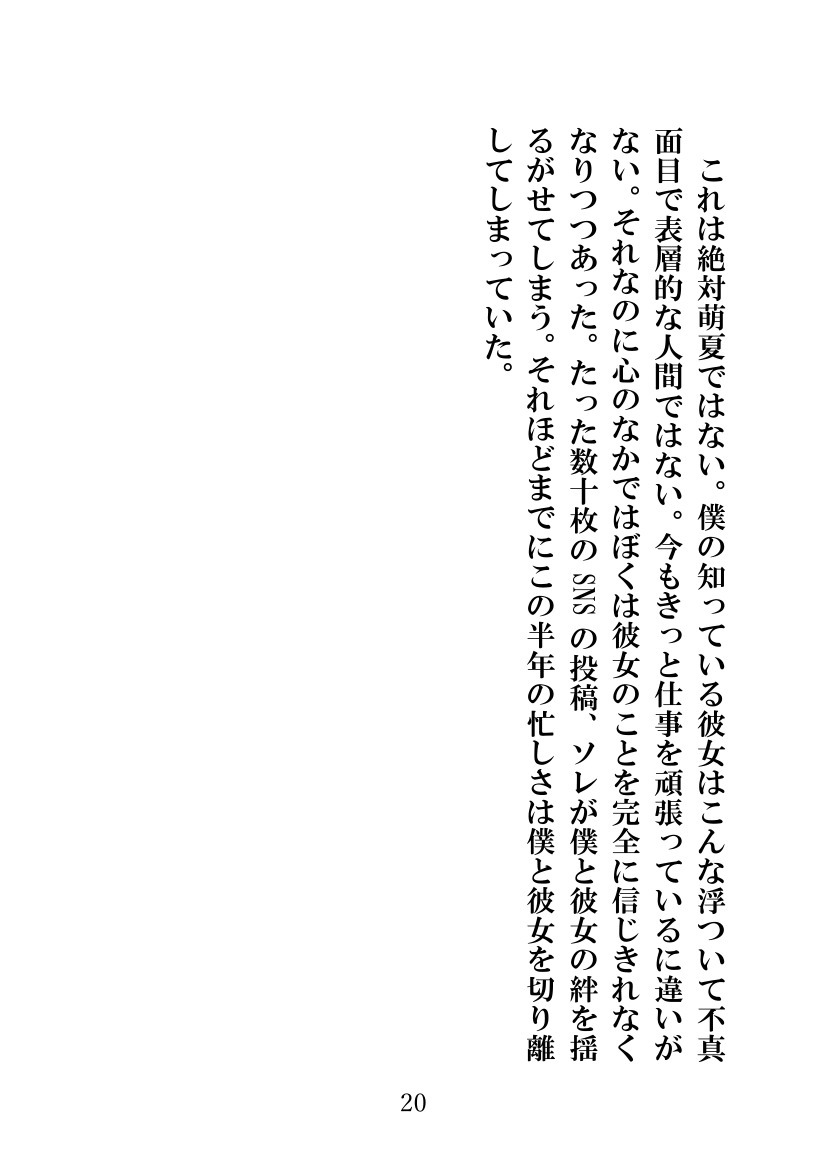 これは絶対萌夏ではない。僕の知っている彼女はこんな浮ついて不真
面目で表層的な人間ではない。今もきっと仕事を頑張っているに違いが
ない。それなのに心のなかではぼくは彼女のことを完全に信じきれなく
なりつつあった。たった数十枚の SNS の投稿、ソレが僕と彼女の絆を揺
るがせてしまう。それほどまでにこの半年の忙しさは僕と彼女を切り離
してしまっていた。
20